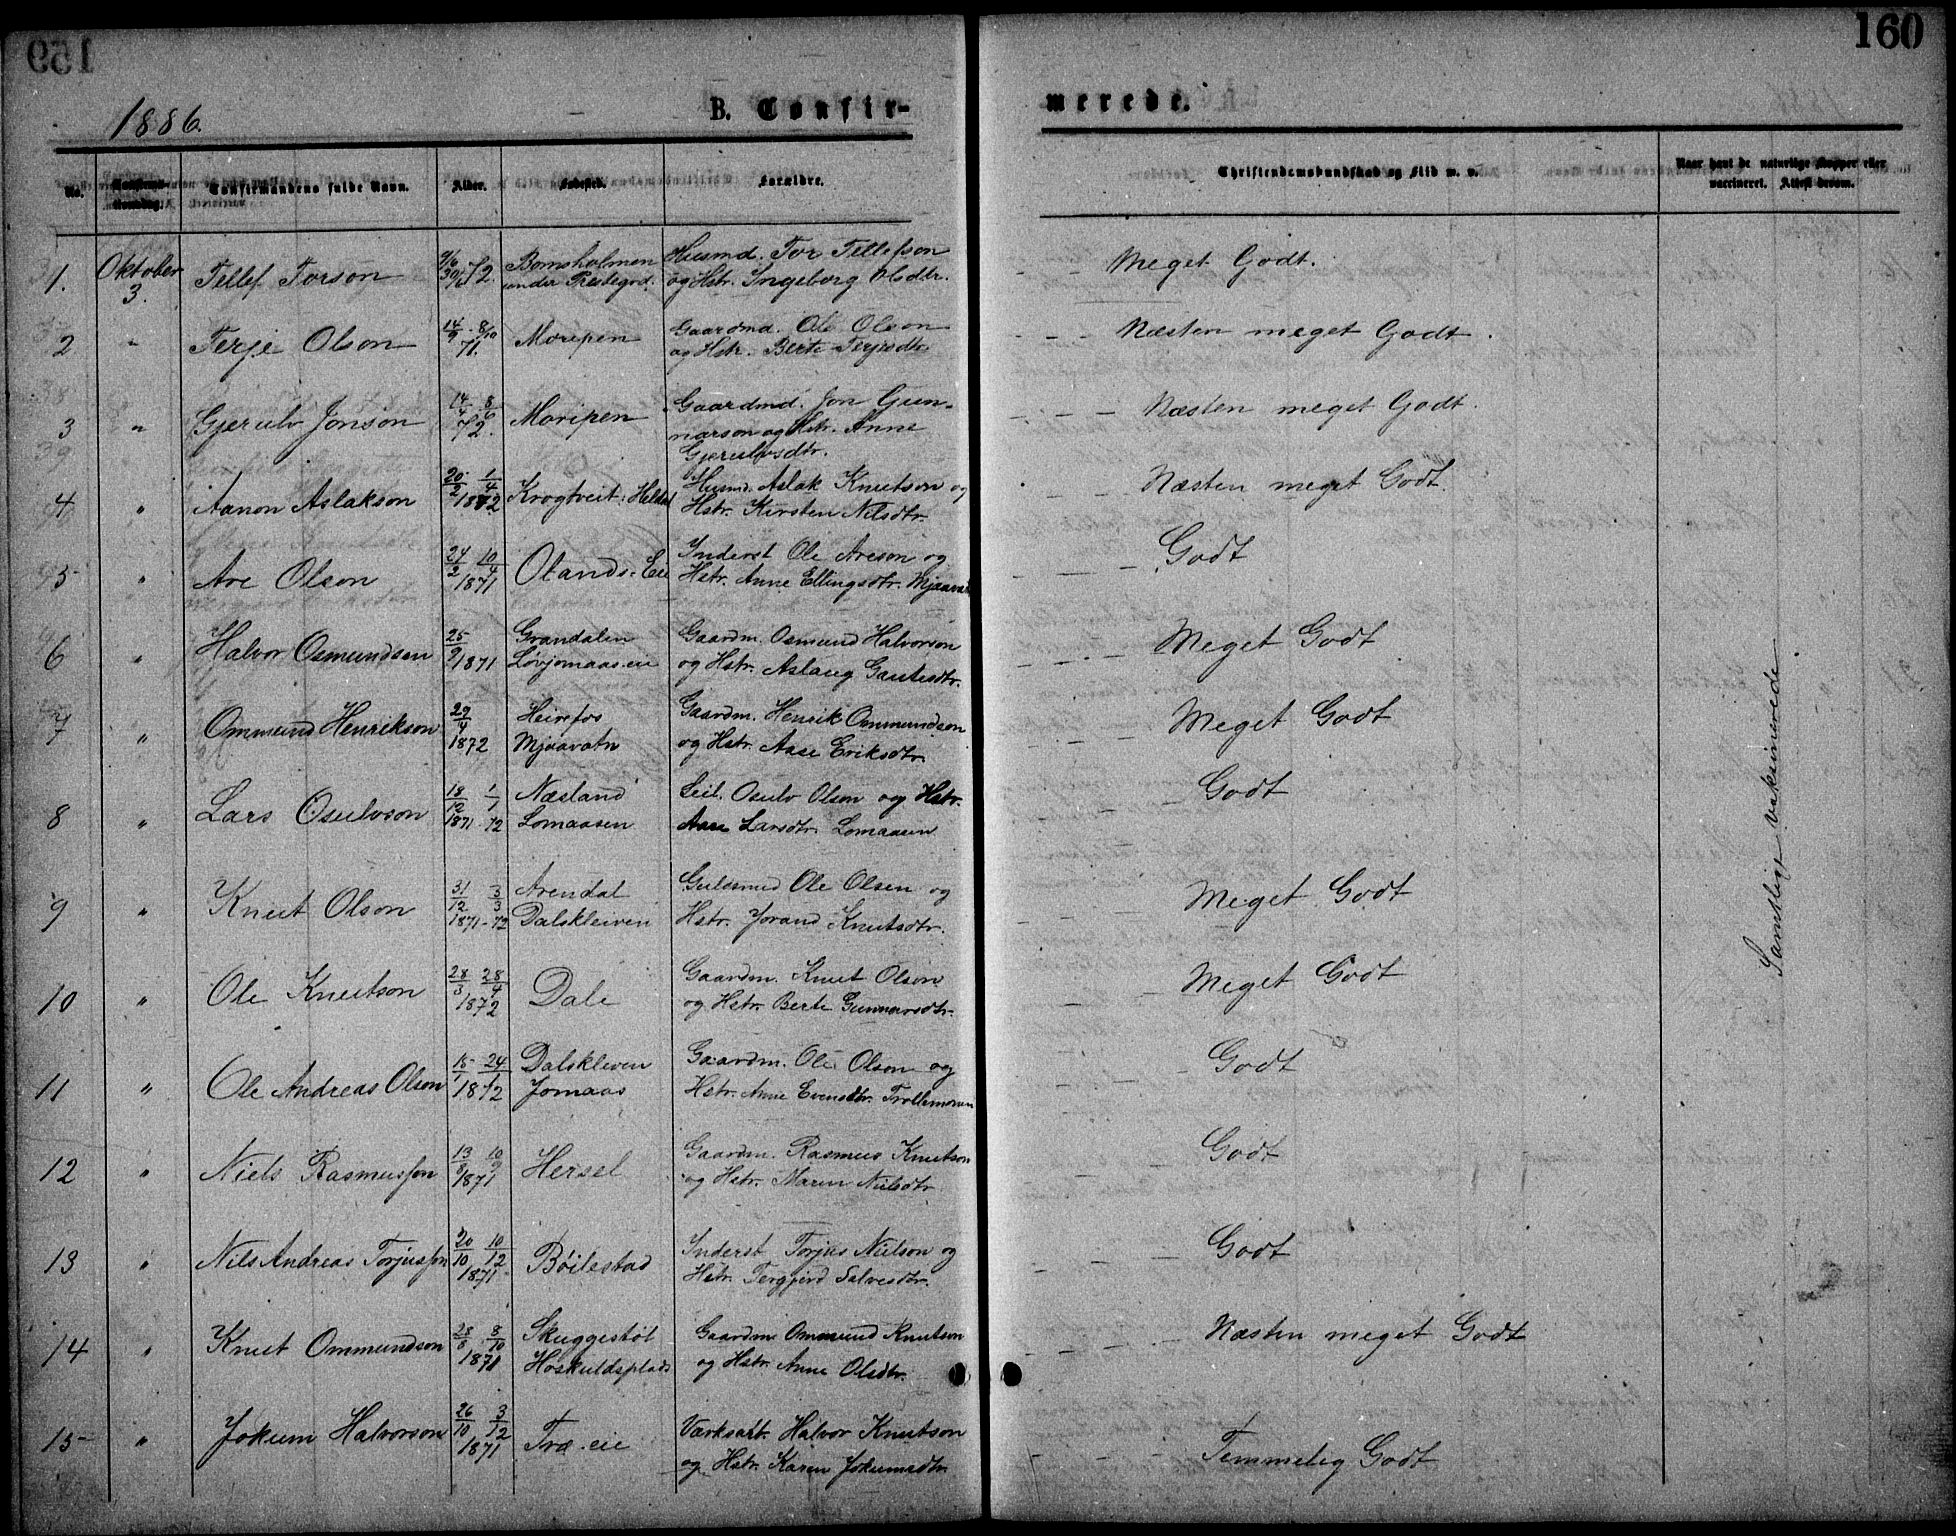 160
1886.
B. Confir-
merede.
No.
Confirmandens fulde Navn.
Alder.
Fødested.
Forældre.
Christendomskundskab og Flid m. v.
Naar havt de naturlige Kopper eller
vaccineret. Attest derom.
1. Oktober 3. Tellef Torson 72. Bomsholmen under Prestegrd. Husmd. Tor Tellefson
og Hstr. Ingeborg Olsdtr. Meget Godt.
2 " Terje Olson 14/9 - 8/10 71. Moripen Gaardmd. Ole Olson
og Hstr. Berte Terjesdtr. Næsten meget Godt.
3 " Gjerulv Jonson 14/4 8/6 72. Moripen Gaardmd. Jon Gun-
narson og Hstr. Anne
Gjerulvsdtr. Næsten meget Godt.
4 " Aanon Aslakson 20/2 1/4 1872 Krogtveit: Husmd. Aslak Knutson og
Hstr. Kirsten Nilsdtr. Næsten meget Godt
5 " Are Olson 24/2 10/4 1871 Olands-Eie Inderst Ole Areson og
Hstr. Anne Ellingsdtr. Godt
6 " Halvor Osmundsen 25/9 1871 Grandalen Løvjomaas.eie Gaardm. Osmund Halvorson
og Hstr. Aslaug Gautesdtr. Meget Godt
7 " Ommund Henrikson 29/4 1872 Heirefos Mjaavatn Gaardm. Henrik Ommundson
og Hstr. Aase Eriksdtr. Meget Godt
8 " Lars Osulvson 18/12 1/1 1871-72 Næsland Lomaasen Leil. Osulv Olson og Hstr.
Aase Larsdtr. Lomaasen Godt
9 " Knut Olson 31/12 3/3 1871-72 Arendal Dalskleiven Guldsmed Ole Olsen og
Hstr. Jorand Knutsdtr. Meget Godt
10 " Ole Knutson 28/3 28/4 1872 Dale Gaardm. Knut Olson
og Hstr. Berte Gunnarsdtr. Meget Godt
11 " Ole Andreas Olson 15/1 24/1 1872 Dalskleven Jomaas Gaardm. Ole Olson og
Hstr. Anne Evensdtr. Godt
12 " Niels Rasmusson 13/8 10/9 1871 Hersel Gaardm. Rasmus Knutson
og Hstr. Maren Nilsdtr. Godt
13 " Nils Andreas Torjusson 20/10 10/12 1871 Bøilestad Inderst Torjus Nielson og
Hstr. Tergjerd Salvesdtr. Godt
14 " Knut Ommundson 28/8 8/10 1871 Skuggestøl Høskuldsplads Gaardm Ommund Knutson
og Hstr. Anne Olsdtr. Næsten meget Godt
15 " Jokum Halvorson 26/10 3/12 1871 Træ-eie Værksarb. Halvor Knutson
og Hstr. Karen Jokumsdtr. Temmelig Godt
Samtlige vaksinerede